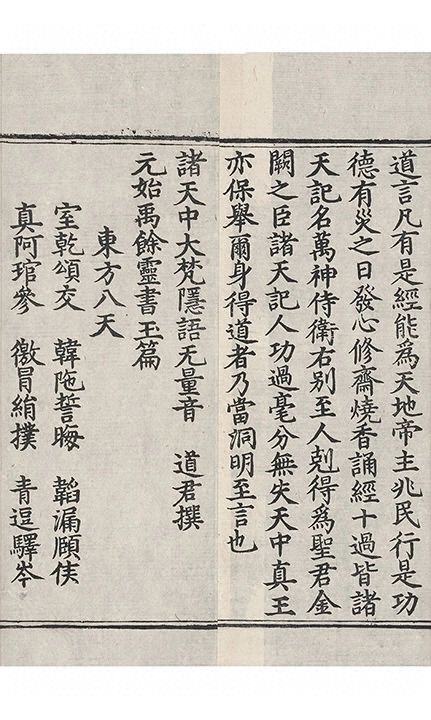 道言凡有是經能爲天地帝主兆民行是功
德有災之日發心修齋燒香誦經十過皆諸
天記名萬神侍衛右别至人剋得爲聖君金
闕之臣諸天記人功過毫分無失天中真王
亦保舉爾身得道者乃當洞明至言也
諸天中大梵隱語无量音　道君撰
元始禹餘靈書玉篇
東方八天
室乾頌交　韓陁誓晦　韜漏頤佉
真阿琯參　徼冐絹撲　青逗驛岑